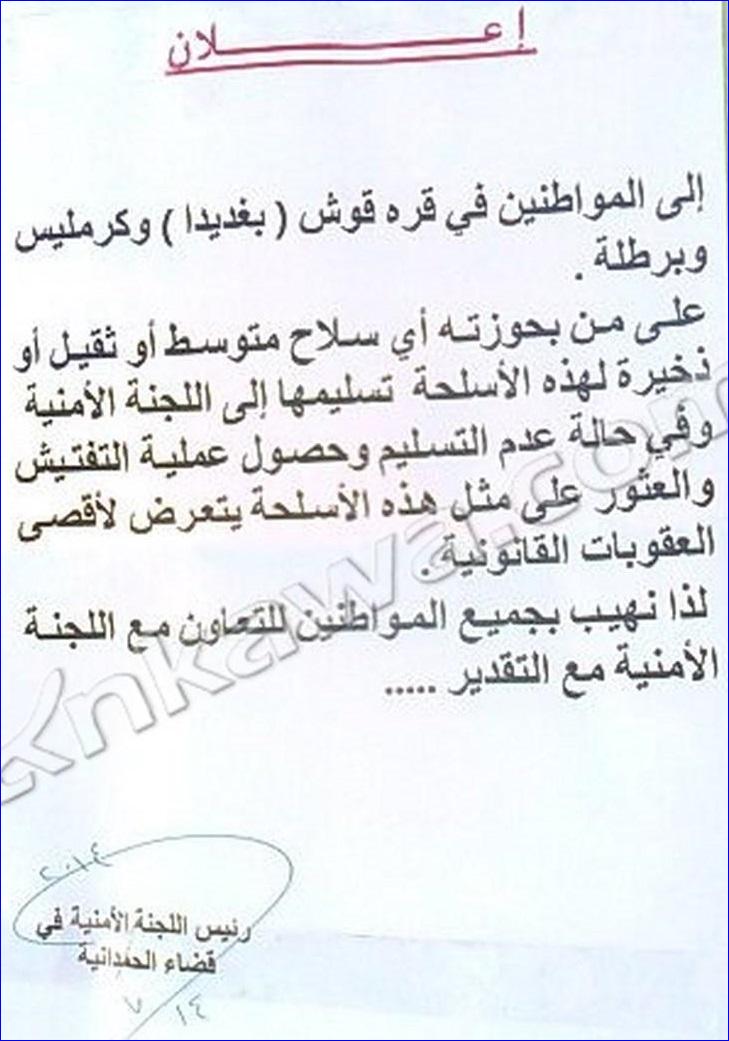 إعـــــــلان
إلى المواطنين في قره قوش ( بغديدا ) وكرمليس
وبرطلة .
على من بحوزته أي سلاح متوسط أو ثقيل أو
ذخيرة لهذه الأسلحة تسليمها إلى اللجنة الأمنية
وفي حالة عدم التسليم وحصول عملية التفتيش
والعثور على مثل هذه الأسلحة يتعرض لأقصى
العقوبات القانونية .
لذا نهيب بجميع المواطنين للتعاون مع اللجنة
الأمنية مع التقدير .....
ankawa.com
٢٠١٤
رئيس اللجنة الأمنية في
قضاء الحمدانية
٧
١٤